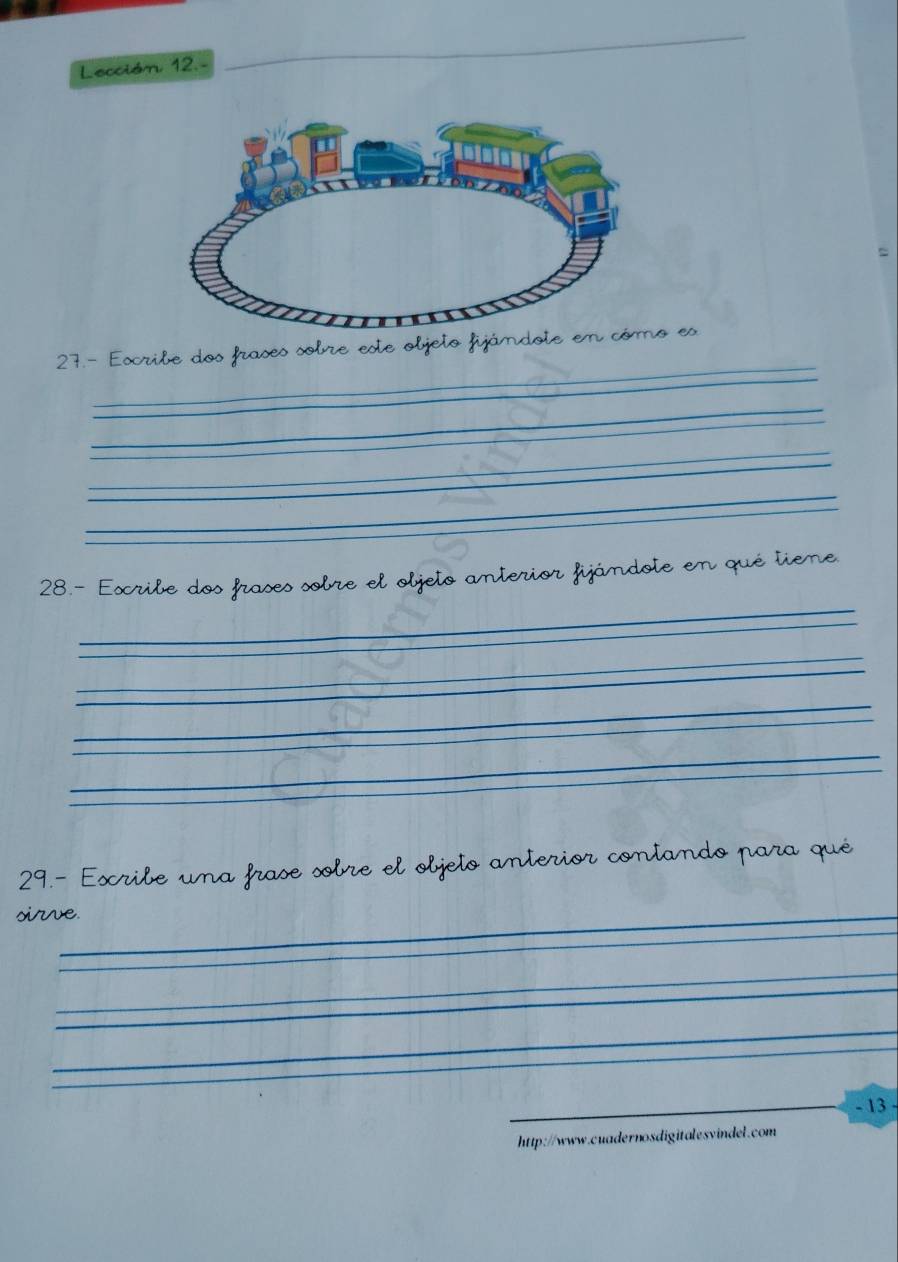 Lección 12.-
27.- Escribe dos frases sobre este objeto fijándote en cómo es
28.- Escribe dos frases sobre el objeto anterior fijándote en qué tiene.
29.- Escribe una frase sobre el objeto anterior contando para qué
sirve.
Cuadernos Vindel
- 13 -
http://www.cuadernosdigitalesvindel.com